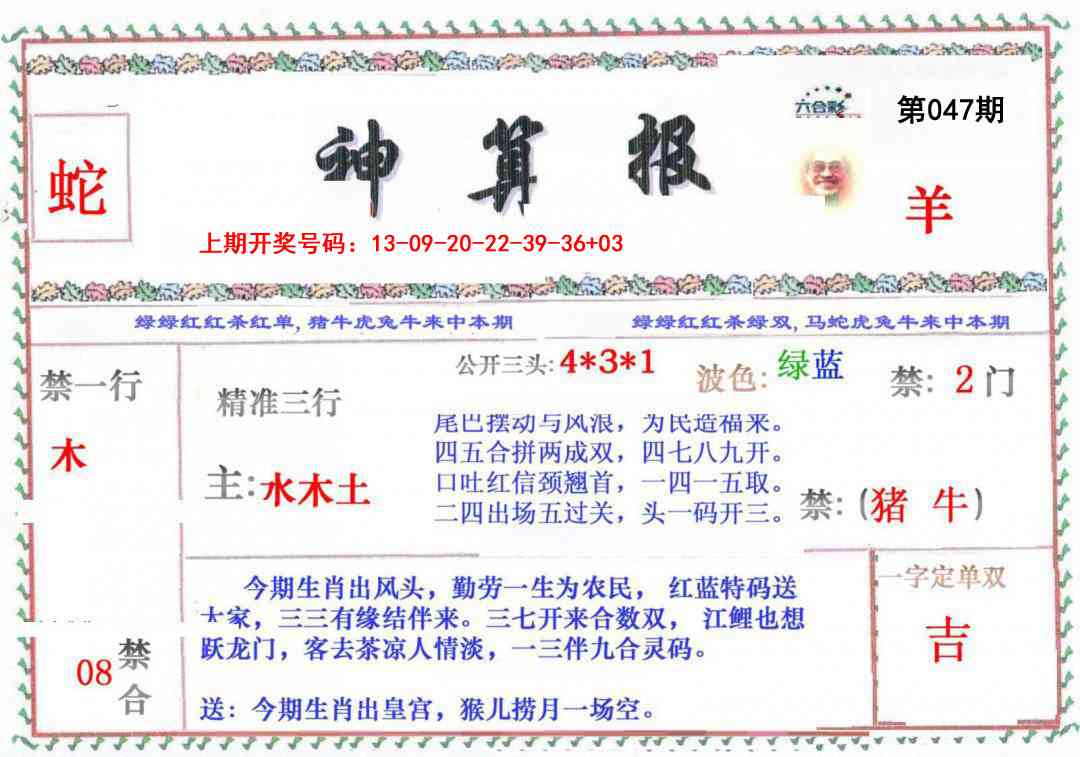 六合彩
第047期
蛇
神算报
羊
上期开奖号码：13-09-20-22-39-36+03
绿绿红红杀红单,猪牛虎兔牛来中本期
绿绿红红杀绿双,马蛇虎兔牛来中本期
禁一行
木
精准三行
主:水木土
公开三头:4*3*1
波色:绿蓝
禁:2门
尾巴摆动与风浪，为民造福来。
四五合拼两成双，四七八九开。
口吐红信颈翘首，一四一五取。
二四出场五过关，头一码开三。
禁:(猪 牛)
今期生肖出风头，勤劳一生为农民， 红蓝特码送
大家，三三有缘结伴来。三七开来合数双， 江鲤也想
跃龙门，客去茶凉人情淡，一三伴九合灵码。
送：今期生肖出皇宫，猴儿捞月一场空。
08
禁
合
一字定单双
吉